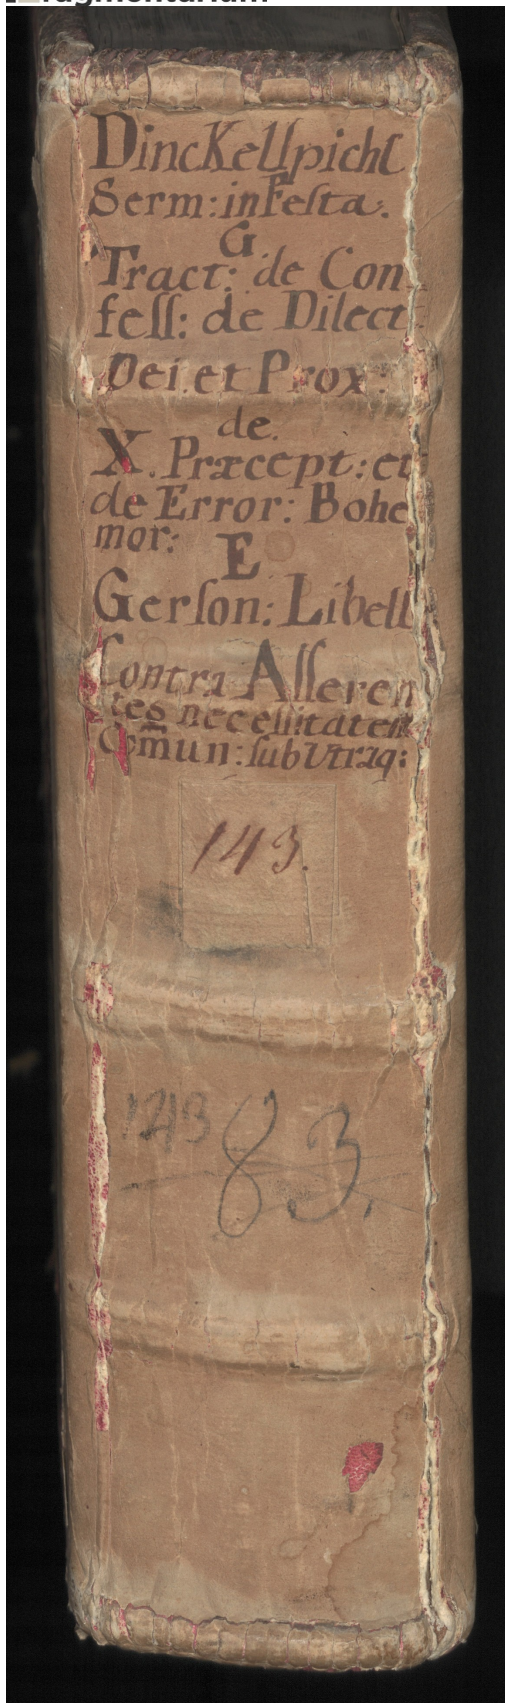 Dinckellpichl
Serm: in Festa.
G.
Tract: de Con
fess: de Dilect
Dei. et Prox:
de.
X. Præcept: et
de Error: Bohe
mor:
E
Gerson: Libell
Contra Asseren
tes necessitatem
Com̅un: sub Utraq:
143.
143
83.